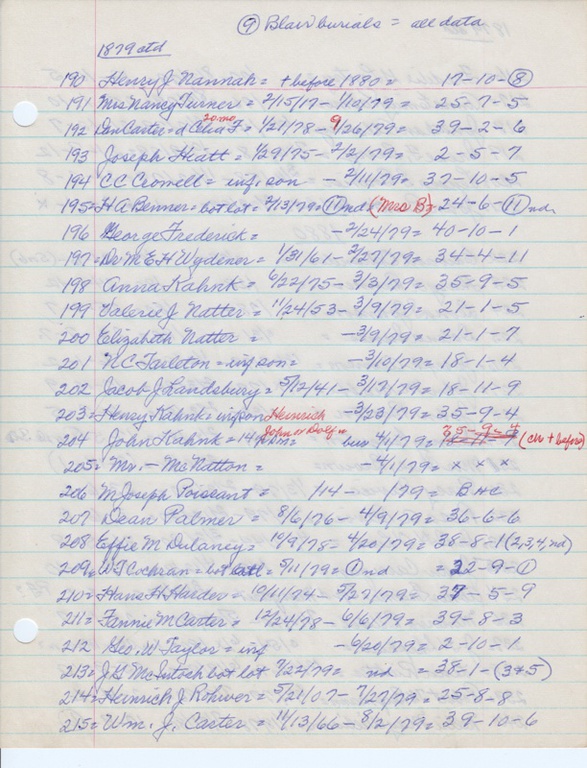 ⑨ Blair burials = all data
1879 ctd
190 Henry J. Nannah = + before 1880 = 17-10-⑧
191 Mrs Nancy Turner = 2/15/17 - 1/10/79 = 25-7-5
20 mo
192 Dan Carter = d Celia F = 1/21/78 - 9/26/79 = 39-2-6
193 Joseph Hiatt = 1/29/75 - 2/2/79 = 2-5-7
194 C C Crowell = inf. son - 2/11/79 = 37-10-5
195 = H A Benner = bot lot = 2/13/79 = ⑪ nd (Mrs B) = 24-6-⑪ nd
196 George Frederick = - 2/24/79 = 40-10-1
197 = Dr M. E. H Wydener = 1/31/61 - 2/27/79 = 34-4-11
198 Anna Kahnk = 6/22/75 - 3/3/79 = 35-9-5
199 Valerie J. Natter = 11/24/53 - 3/9/79 = 21-1-5
200 Elizabeth Natter = - 3/9/79 = 21-1-7
201 N C Tarleton = inf son = - 3/10/79 = 18-1-4
202 Jacob J Landsbury = 5/12/41 - 3/17/79 = 18-11-9
203 = Henry Kahnk = inf son Heinrich - 3/23/79 = 35-9-4
John or Dolf = 35-9-4
204 John Kahnk = 14 bur 4/1/79 = (ch + before)
205 = Mr. - McNatton = - 4/1/79 = x x x
206 M Joseph Poissant = /14 - /79 = B+C
207 Dean Palmer = 8/6/76 - 4/9/79 = 36-6-6
208 Effie M Dulaney = 10/9/78 - 4/20/79 = 38-8-1 (2,3,4, nd)
209 = W T Cochran = bot 5/11/79 = ① nd = 22-9-①
210 = Hans H Herder = 10/11/74 - 5/27/79 = 37-5-9
211 = Fannie M Carter = 12/24/78 - 6/6/79 = 39-8-3
212 Geo. W Taylor = inf - 6/20/79 = 2-10-1
213 = J G McIntosh bot lot 7/22/79 = nd = 38-1-(3+5)
214 = Heinrich J. Rohwer = 5/21/07 - 7/27/79 = 25-8-8
215 = Wm. J. Carter = 11/13/66 - 8/2/79 = 39-10-6